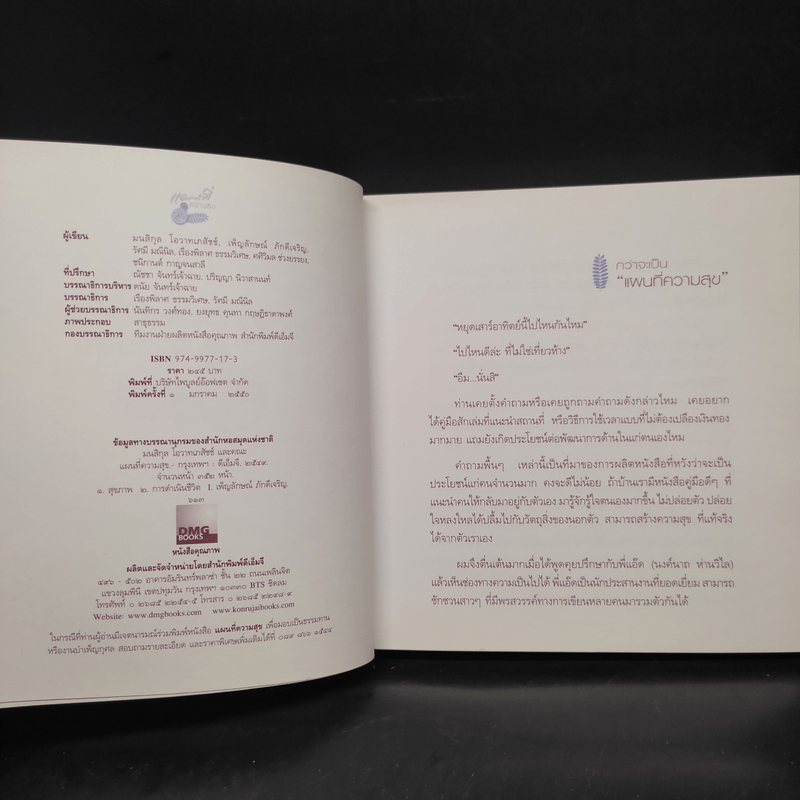 แผนที่
ความสุข
ผู้เขียน มนสิกุล โอวาทเภสัชช์, เพ็ญลักษณ์ ภักดีเจริญ,
รัศมี มณีนิล, เรืองพิลาศ ธรรมวิเศษ, ศศิวิมล ช่วงยรรยง,
ชนิกานต์ กาญจนสาลี
ที่ปรึกษา ณัชชา จันทร์เจ้าฉาย, ปริญญา นิวาสานนท์
บรรณาธิการบริหาร ดนัย จันทร์เจ้าฉาย
บรรณาธิการ เรืองพิลาศ ธรรมวิเศษ, รัศมี มณีนิล
ผู้ช่วยบรรณาธิการ นันทิกร วงศ์ทอง, ยงยุทธ คุนทา กฤษฎิธาดาพงศ์
ภาพประกอบ สาธุธรรม
กองบรรณาธิการ ทีมงานฝ่ายผลิตหนังสือคุณภาพ สำนักพิมพ์ดีเอ็มจี
ISBN 974-9977-17-3
ราคา ๒๔๕ บาท
พิมพ์ที่ บริษัทไพบูลย์อ๊อฟเซต จำกัด
พิมพ์ครั้งที่ ๑ มกราคม ๒๕๕๐
ข้อมูลทางบรรณานุกรมของสำนักหอสมุดแห่งชาติ
มนสิกุล โอวาทเภสัชช์ และคณะ
แผนที่ความสุข.- กรุงเทพฯ : ดีเอ็มจี, ๒๕๔๙.
จำนวนหน้า ๓๕๒ หน้า.
๑. สุขภาพ ๒. การดำเนินชีวิต I. เพ็ญลักษณ์ ภักดีเจริญ.
๖๑๓
DMG
BOOKS
หนังสือคุณภาพ
ผลิตและจัดจำหน่ายโดยสำนักพิมพ์ดีเอ็มจี
๔๙๖ - ๕๐๒ อาคารอัมรินทร์พลาซ่า ชั้น ๒๒ ถนนเพลินจิต
แขวงลุมพินี เขตปทุมวัน กรุงเทพฯ ๑๐๓๓๐ BTS ชิดลม
โทรศัพท์ ๐ ๒๖๘๕ ๒๒๕๔-๕ โทรสาร ๐ ๒๖๘๕ ๒๒๙๘-๙
Website: www.dmgbooks.com www.konrujaibooks.com
ในกรณีที่ท่านผู้อ่านมีเจตนารมณ์ร่วมพิมพ์หนังสือ แผนที่ความสุข เพื่อมอบเป็นธรรมทาน
หรืองานบำเพ็ญกุศล สอบถามรายละเอียด และราคาพิเศษเพิ่มเติมได้ที่ ๐๘๙ ๘๖๖ ๑๕๔๔
กว่าจะเป็น
“แผนที่ความสุข”
“หยุดเสาร์อาทิตย์นี้ไปไหนกันไหม”
“ไปไหนดีล่ะ ที่ไม่ใช่เที่ยวห้าง”
“อืม...นั่นสิ”
ท่านเคยตั้งคำถามหรือเคยถูกถามคำถามดังกล่าวไหม เคยอยาก
ได้คู่มือสักเล่มที่แนะนำสถานที่ หรือวิธีการใช้เวลาแบบที่ไม่ต้องเปลืองเงินทอง
มากมาย แถมยังเกิดประโยชน์ต่อพัฒนาการด้านในแก่ตนเองไหม
คำถามพื้นๆ เหล่านี้เป็นที่มาของการผลิตหนังสือที่หวังว่าจะเป็น
ประโยชน์แก่คนจำนวนมาก คงจะดีไม่น้อย ถ้าบ้านเรามีหนังสือคู่มือดีๆ ที่
แนะนำคนให้กลับมาอยู่กับตัวเอง มารู้จักรู้ใจตนเองมากขึ้น ไม่ปล่อยตัว ปล่อย
ใจหลงใหลได้ปลื้มไปกับวัตถุสิ่งของนอกตัว สามารถสร้างความสุข ที่แท้จริง
ได้จากตัวเราเอง
ผมจึงตื่นเต้นมากเมื่อได้พูดคุยปรึกษากับพี่แอ๊ด (นงค์นาถ ห่านวิไล)
แล้วเห็นช่องทางความเป็นไปได้ พี่แอ๊ดเป็นนักประสานงานที่ยอดเยี่ยม สามารถ
ชักชวนสาวๆ ที่มีพรสวรรค์ทางการเขียนหลายคนมารวมตัวกันได้